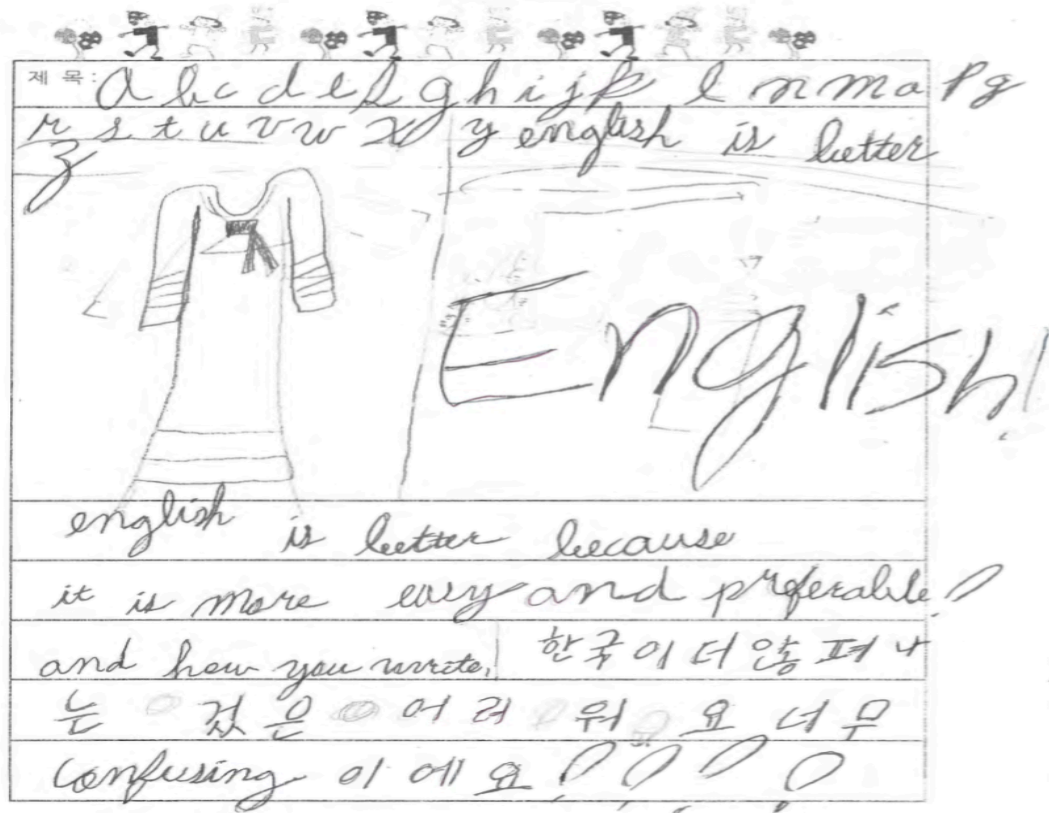 제 목 : a b c d e f g h i j k l n m o p q
r s t u v w x y english is better
z
English!
english is better because
it is more easy and preferable!
and how you wrote, 한국이 더 않 펴 나
는 것 은 어 러 워 요 너 무
confusing 이 에 요 ! ! ! !